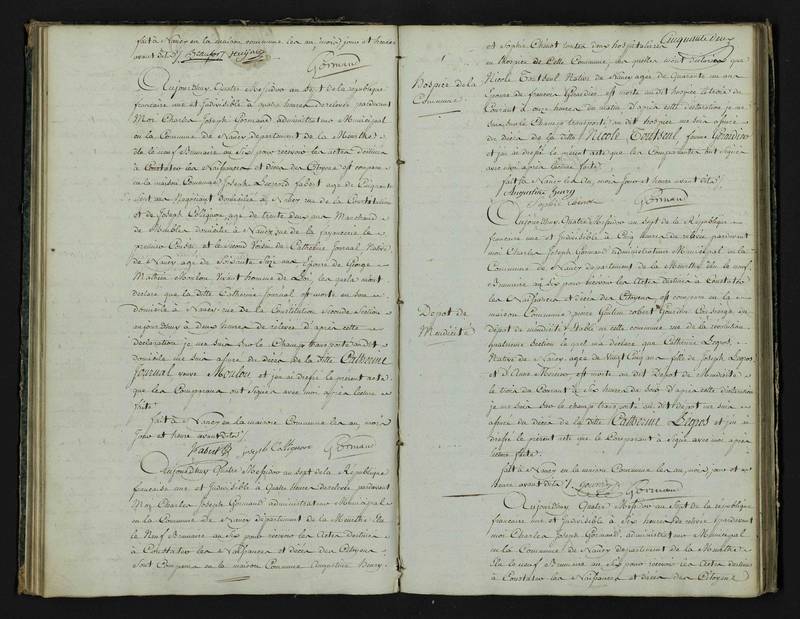 fait à Nancy en la maison commune les an, mois, jour et heure
avant dits
Gormand
Aujourdhuy Quatre Messidor au sept de la république
francaise une et indivisible à quatre heure de relevée pardevant
Moi Charles Joseph Gormand administrateur Municipal
en la Commune de Nancy département de la Meurthe
élu le neuf Brumaire an Six pour recevoir les actes destinés
à Constater les Naissances et décès des Citoyens est comparu
en la maison Commune Joseph Leopold fabert agé de Cinquante
ans Negociant domicilié à Nancy rue de la Constitution
et de Joseph Colignon agé de trente deux ans Marchand
de Meubles domicilié à Nancy rue de la le
premier Cousin et le second Voisin de Catherine Journal Native
de Nancy agée de Soixante Seize ans Epouse de George
Mathieu Moulon Vivant homme de Loi, les quels m'ont
déclaré que la ditte Catherine Journal est morte en son
domicile à Nancy rue de la Constitution Seconde Section
aujourdhuy à deux heures de relevée d'après cette
déclaration je me suis sur le Champ transporté au dit
domicile me suis assuré du décès de la ditte Catherine
Journal veuve Moulon et j'ai dressé le présent acte
que les Comparans ont Signés avec moi après lecture
faite
fait à Nancy en la maison Commune les an, mois
Jour et heure avant dits
fabert Joseph Collignon Gormand
Aujourdhuy Quatre Messidor au sept de la République
francaise une et Indivisible à Quatre heure de relevée pardevant
Moy Charles Joseph Gormand administrateur Municipal
en la Commune de Nancy département de la Meurthe élu
le Neuf Brumaire an Six pour recevoir les Actes destinés
à Constater les Naissances et décès des Citoyens
Sont Comparus en la maison Commune Augustine Henry
Cinquante deux
et Sophie Chénot toutes deux hospitalieres
Hospice de la
Commune
en l'hospice de Cette Commune, les quelles m'ont déclarées que
Nicole Toutseul Native de Nancy agée de Quarante un ans
Epouse de francois Girardin est morte au dit hospice le trois du
Courant à onze heures du matin d'après cette déclaration je me
suis sur le Champ transporté au dit hospice me suis assuré
du décès de la ditte Nicole Toutseul femme Girardin
et j'ai dressé le présent acte que les Comparantes ont Signé
avec moi après lecture faite
fait à Nancy les an, mois, jour et heure avant dits
Augustine henry
Sophie chenot Gormand
Aujourdhuy Quatre Messidor an sept de la République
francaise une et Indivisible à Cinq heures de relevée pardevant
moi Charles Joseph Gormand administrateur Municipal en la
Commune de Nancy département de la Meurthe élu le neuf
Brumaire an Six pour recevoir les Actes destinés à Constater
les Naissances et décès des Citoyens, est comparu en la
Depot de
Mendicité
maison Commune Concierge du
dépot de mendicité établi en cette commune rue de la
quatrieme Section le quel m'a déclaré que Catherine Legros,
Native de Nancy agée de Vingt Cinq ans fille de Joseph Legros
et d'Anne est morte au dit Depot de Mendicité
le trois du Courant à Six heures du soir d'après cette déclaration
je me suis sur le champ transporté au dit depot me suis
assuré du décès de la ditte Catherine Legros et j'ai
dressé le présent acte que le Comparant à Signé avec moi après
lecture faite
fait à Nancy en la maison Commune les an, mois, jour et
heure avant dits
Gormand
Aujourdhuy Quatre Messidor an Sept de la république
francaise une et Indivisible à Six heures de relevée pardevant
moi Charles Joseph Gormand, administrateur Municipal
en la Commune de Nancy département de la Meurthe
élu le neuf Brumaire an Six pour recevoir les actes destinés
à Constater les Naissances et décès des Citoyens